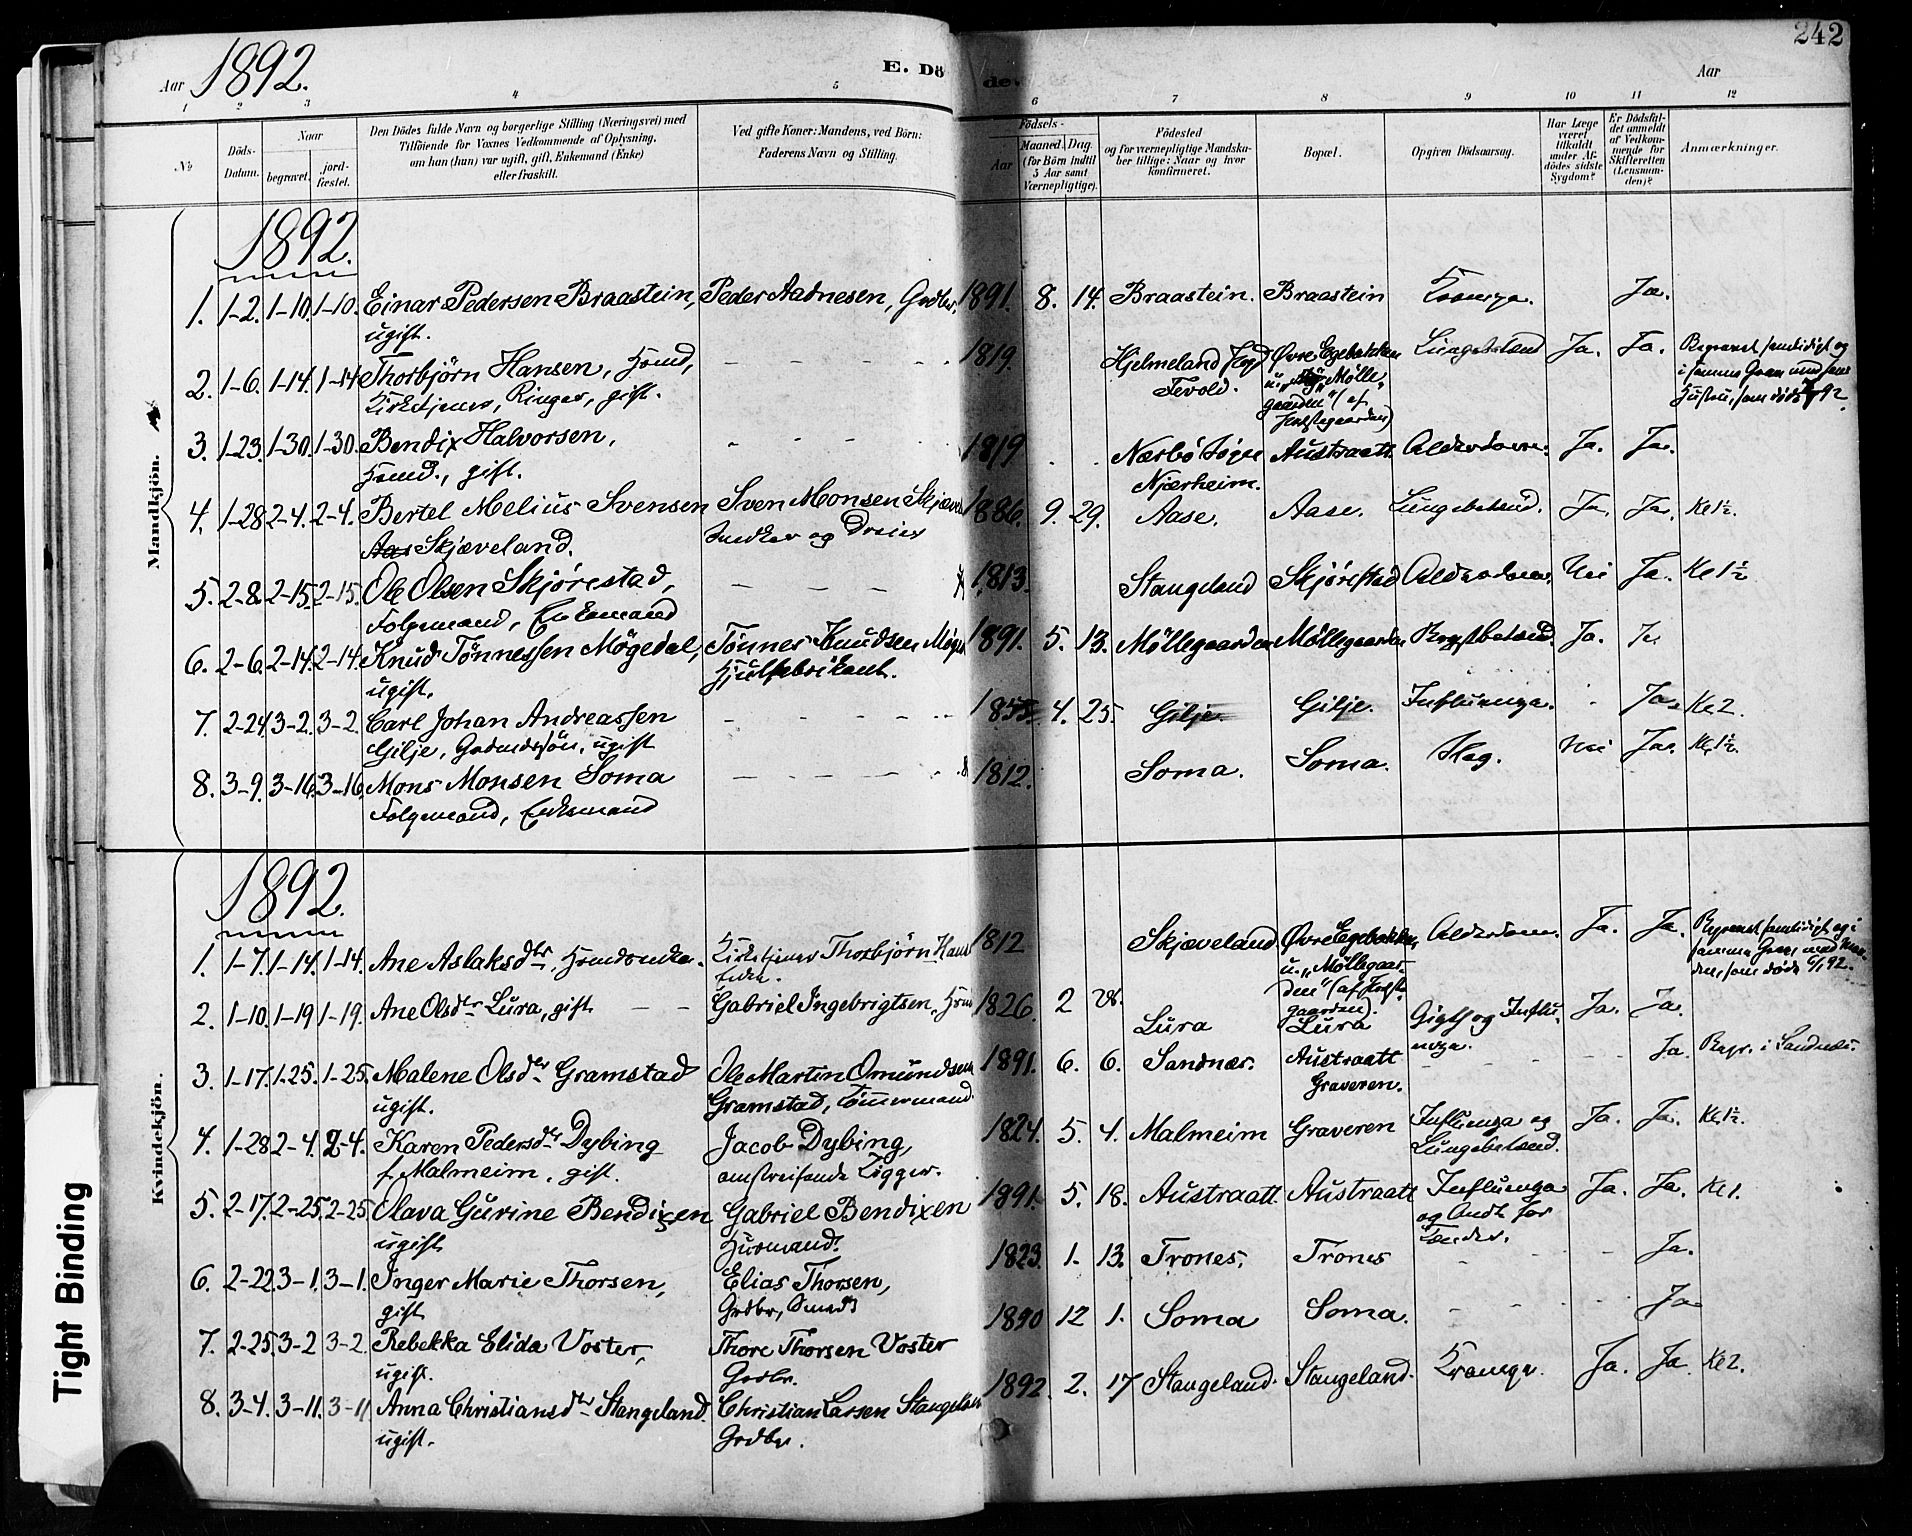 242
Aar 1892. E. Dö de. Aar
1 2 3 4 5 6 7 8 9 10 11 12
№ Döds-Datum. Naar begravet. jord-fæstet.
Den Dödes fulde Navn og borgerlige Stilling (Næringsvei) med
Tilföiende for Voxnes Vedkommende af Oplysning,
om han (hun) var ugift, gift, Enkemand (Enke)
eller fraskilt.
Ved gifte Koner: Mandens, ved Börn:
Faderens Navn og Stilling.
Födsels-
Aar Maaned. Dag.
(for Börn indtil
5 Aar samt
Værnepligtige).
Födested
og for værnepligtige Mandska-
ber tillige: Naar og hvor
konfirmeret.
Bopæl.
Opgiven Dödsaarsag.
Har Læge
været
tilkaldt
under Af-
dödes sidste
Sygdom?
Er Dödsfal-
det anmeldt
af Vedkom-
mende for
Skifteretten
(Lensman-
den)?
Anmærkninger.
Mandkjön.
1892.
1. 1-2. 1-10. 1-10. Einar Pedersen Braastein, Peder Aadnesen, Grdbr. 1891. 8. 14. Braastein. Braastein Ja.
ugift.
2. 1-6. 1-14. 1-14 Thorbjörn Hansen, Hmd, 1819. Hjelmeland Øvre Egebakken Lungebetænd Ja. Ja. Begravet samtidigt og
Kirketjener, Ringer, gift. Tevold. u. „Mølle- i samme Grav med sin
gaarden" (af Hustru, som døde 7/1 92.
3. 1-23. 1-30. 1-30. Bendix Halvorsen, 1819 Nærbö Sogn Austraatt Alderdom. Ja. Ja.
Hmd., gift. Njærheim.
4. 1-28. 2-4. 2-4. Bertel Melius Svensen Sven Monsen Skjæve 1886. 9. 29. Aase. Aase. Lungebetænd. Ja. Ja. Ke 1½.
Skjæveland. Snedker og Dreier
5. 2-8. 2-15. 2-15. Ole Olsen Skjörestad, 1813. Stangeland Skjörestad Alderdom. Nei Ja. Ke 1½
Folgemand, Enkemand
6. 2-6. 2-14. 2-14. Knud Tönnessen Mögedal, Tönnes Knudsen Möge 1891. 5. 13. Möllegaarden Möllegaarden Brystbetænd Ja. Ja
ugift. Hjulfabrikant.
7. 2-24. 3-2. 3-2. Carl Johan Andreassen 1855. 4. 25. Gilje. Gilje. Influenza. Ja. Ke 2.
Gilje, Grdmdssön, ugift
8. 3-9. 3-16. 3-16. Mons Monsen Soma 1812. Soma. Soma. Slag. Nei Ja. Ke 1½.
Folgemand, Enkemand
Kvindekjön.
1892.
1. 1-7. 1-14. 1-14. Ane Aslaksdtr, Kirketjener Thorbjörn Hans 1812 Skjæveland Øvre Egebakken Alderdom. Ja. Ja. Begravet samtidigt og i
u. „Möllegaar- samme Grav med Man-
den" (af den, som døde 6/1 92.
gaarden).
2. 1-10. 1-19 1-19. Ane Olsdtr Lura, gift Gabriel Ingebrigtsen, Hmd 1826. 2 Lura Lura Gigtf. og Influ- Ja. Ja.
enza.
3. 1-17. 1-25. 1-25. Malene Olsdtr Gramstad Ole Martin Omundsen 1891. 6. 6. Sandnæs. Austraatt Ja. Begr. i Sandnæs.
ugift. Gramstad, Tömmermand. Graveren.
4. 1-28 2-4. 2-4. Karen Pedersdtr Dybing Jacob Dybing, 1824. 5. 4. Malmeim Graveren Influenza og Ja. Ja. Ke 1½.
f. Malmeim, gift. omstreifende Tigger. Lungebetænd.
5. 2-17. 2-25. 2-25. Olava Gurine Bendixen Gabriel Bendixen 1891. 5. 18. Austraatt Austraatt Influenza Ja. Ja. Ke 1.
ugift Husmand. og Ondt for
Tænder.
6. 2-22. 3-1. 3-1. Inger Marie Thorsen, Elias Thorsen, 1823. 1. 13. Trones. Trones Ja.
gift Grdbr, Smed
7. 2-25. 3-2 3-2. Rebekka Elida Voster, Thore Thorsen Voster 1890 12 1. Soma Soma. Ja
ugift. Grdbr.
8. 3-4. 3-11. 3-11 Anna Christiansdtr Stangeland Christian Larsen Stangeland 1892. 2. 17 Stangeland. Stangeland. Krampe. Ja. Ja. Ke 2.
ugift. Grdbr.
Tight Binding